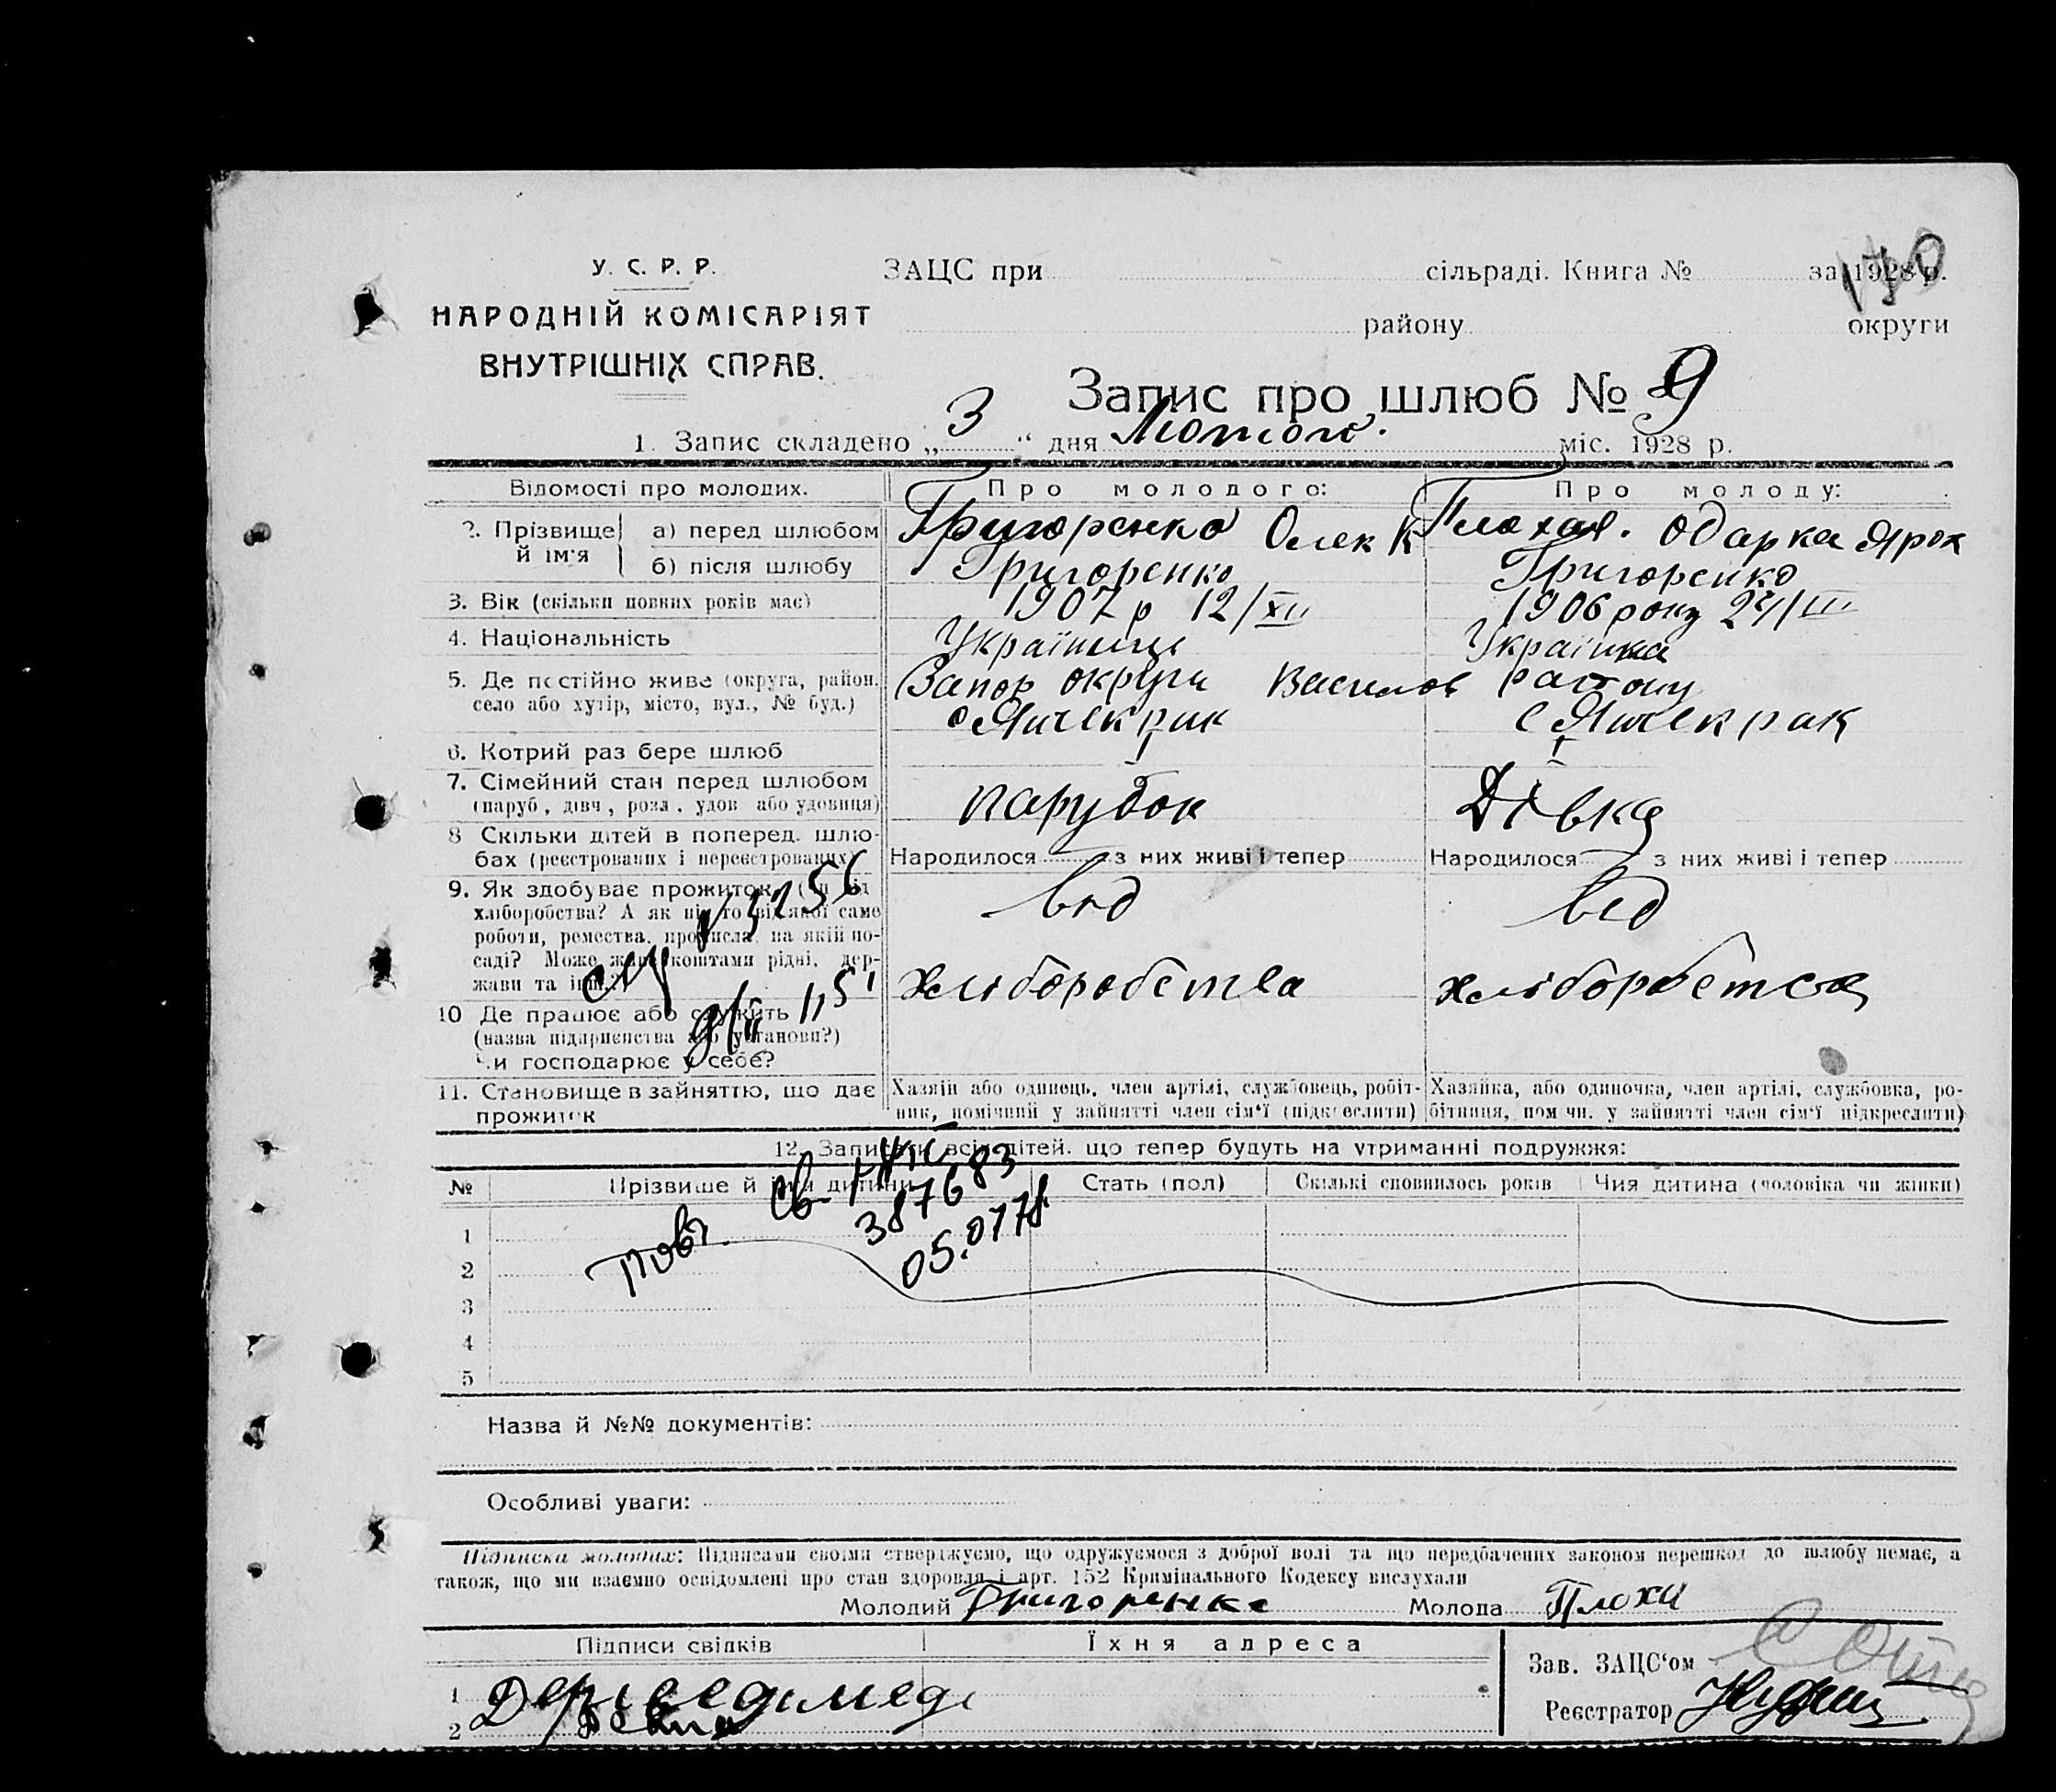 170
У. С. Р. Р.
НАРОДНІЙ КОМІСАРІЯТ
ВНУТРІШНІХ СПРАВ.
ЗАЦС при сільраді. Книга № за 1928 р.
району округи
Запис про шлюб № 9
1. Запис складено „3“ дня Лютого міс. 1928 р.
Відомості про молодих. Про молодого: Про молоду:
2. Прізвище й ім'я а) перед шлюбом Григоренко Олек К Плохая. Одарка Ярох
б) після шлюбу Григоренко Григоренко
3. Вік (скільки повних років має) 1907 р 12/XII 1906 року 24/III
4. Національність Українець Українка
5. Де постійно живе (округа, район. Запор округи Василов району
село або хутір, місто, вул., № буд.) с Янчекрак с Янчекрак
6. Котрий раз бере шлюб I I
7. Сімейний стан перед шлюбом
(паруб, дівч, розл, удов або удовиця) парубок Дівка
8 Скільки дітей в поперед. шлю-
бах (реєстрованих і нереєстрованих) Народилося з них живі і тепер Народилося з них живі і тепер
9. Як здобуває прожиток від від
хліборобства? А як ні, то від якої саме
роботи, ремества, промисла, на якій по-
саді? Може живе коштами рідні, дер-
жави та інш.?) хліборобства хліборобства
10 Де працює або служить
(назва підприємства або установи?)
Чи господарює у себе?
11. Становище в зайняттю, що дає
прожиток
Хазяїн або одинець, член артілі, службовець, робіт-
ник, помічний у зайнятті член сім'ї (підкреслити)
Хазяйка, або одиночка, член артілі, службовка, ро-
бітниця, помічн. у зайнятті член сім'ї підкреслити)
12. Записати всіх дітей, що тепер будуть на утриманні подружжя:
№ Прізвище й імя дитини Стать (пол) Скількі сповнилось років Чия дитина (чоловіка чи жінки)
1
2
3
4
5
Повт. св.
387683
05.0778
Назва й №№ документів:
Особливі уваги:
Підписка молодих: Підписами своїми стверджуємо, що одружуємося з доброї волі та що передбачених законом перешкод до шлюбу немає, а
також, що ми взаємно освідомлені про стан здоровля і арт. 152 Кримінального Кодексу вислухали
Молодий Григоренко Молода Плохи
Підписи свідків Їхня адреса
1
2
Зав. ЗАЦС'ом
Реєстратор